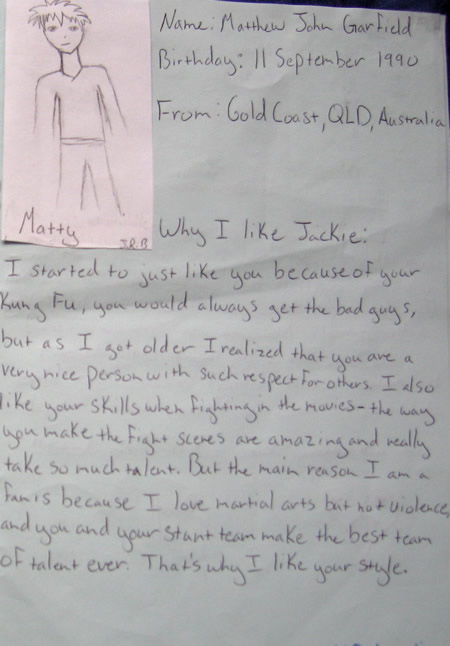 Name: Matthew John Garfield
Birthday: 11 September 1990
From: Gold Coast, QLD, Australia
Matty
J.R.B
Why I like Jackie:
I started to just like you because of your
Kung Fu, you would always get the bad guys,
but as I got older I realized that you are a
very nice person with such respect for others. I also
like your skills when fighting in the movies - the way
you make the fight scenes are amazing and really
take so much talent. But the main reason I am a
fan is because I love martial arts but not violence,
and you and your stunt team make the best team
of talent ever. That's why I like your style.